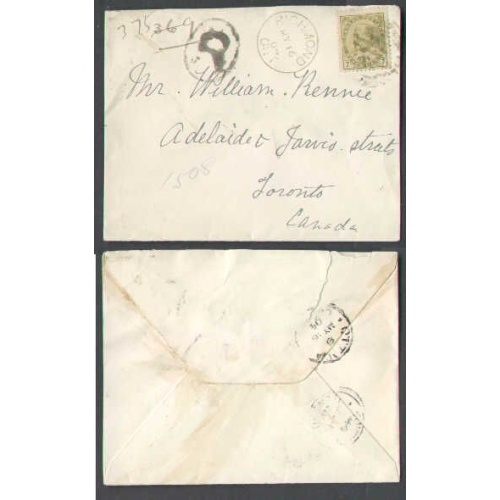 37569
R
RICHMOND
MY 16
QUE
Mr. William. Rennie
Adelaide & Jarvis. streets
1508
Toronto
Canada
MY 16